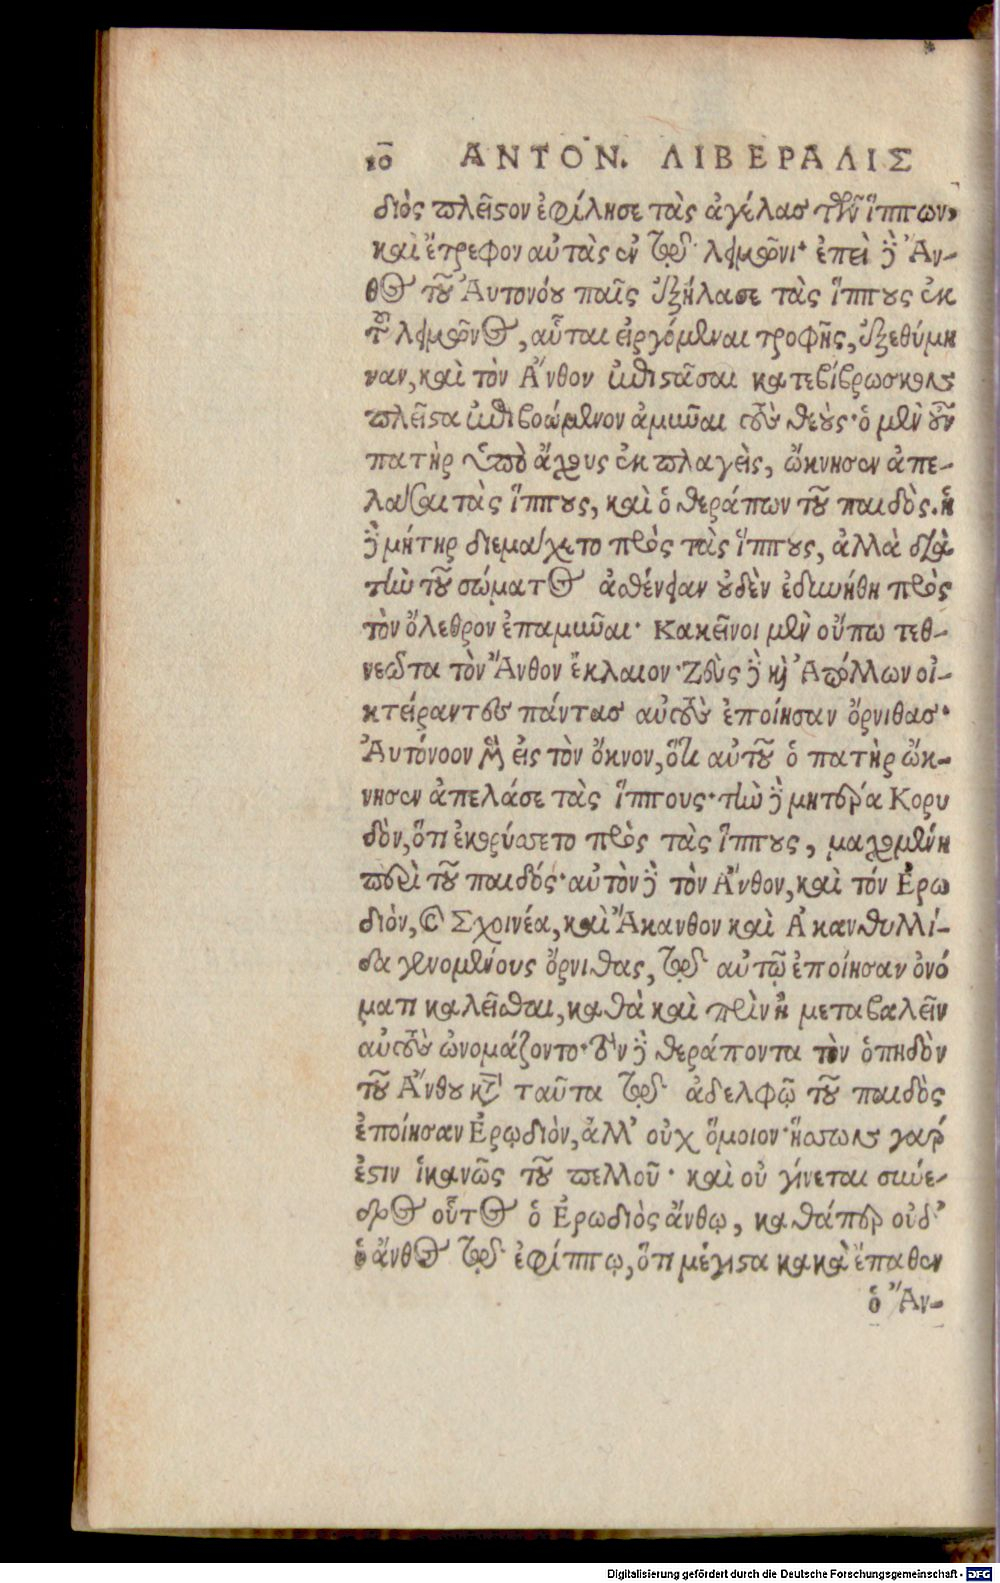 10 ΑΝΤΟΝ. ΛΙΒΕΡΑΛΙΣ
διὸς πλεῖστον ἐφίλησε τὰς ἀγέλας τῶν ἵππων,
καὶ ἔτρεφον αὐτὰς ἐν τῷ λειμῶνι· ἐπεὶ δὲ Ἄν-
θος τοῦ Αὐτονόου παῖς ἐξήλασε τὰς ἵππους ἐκ
τοῦ λειμῶνος, αὗται εἰργόμεναι τροφῆς, ἐξεθύμη
ναν, καὶ τὸν Ἄνθον ἐπιστᾶσαι κατεβίβρωσκον
πλεῖστα ἐπιβοώμενον ἀμῦναι τοὺς θεούς· ὁ μὲν οὖν
πατὴρ ὑπὸ ἄχους ἐκπλαγεὶς, ὤκνησεν ἀπε-
λάσαι τὰς ἵππους, καὶ ὁ θεράπων τοῦ παιδὸς. ἡ
δὲ μήτηρ διεμάχετο πρὸς τὰς ἵππους, ἀλλὰ διὰ
τὴν τοῦ σώματος ἀσθένειαν οὐδὲν ἐδυνήθη πρὸς
τὸν ὄλεθρον ἐπαμῦναι· Κακεῖνοι μὲν οὕπω τεθ-
νεῶτα τὸν Ἄνθον ἔκλαιον· Ζεὺς δὲ καὶ Ἀπόλλων οἰ-
κτείραντες πάντας αὐτοὺς ἐποίησαν ὄρνιθας·
Αὐτόνοον μὲν εἰς τὸν ὄκνον, ὅτι αὐτοῦ ὁ πατὴρ ὤκ-
νησεν ἀπελάσε τὰς ἵππους· τὴν δὲ μητέρα Κορυ
δὸν, ὅτι ἐκορύσσετο πρὸς τὰς ἵππους, μαχομένη
περὶ τοῦ παιδός· αὐτὸν δὲ τὸν Ἄνθον, καὶ τόν Ἐρω
διόν, καὶ Σχοινέα, καὶ Ἄκανθον καὶ Ἀκανθυλλί-
δα γενομένους ὄρνιθας, τῷ αὐτῷ ἐποίησαν ὀνό
ματι καλεῖσθαι, καθὰ καὶ πρὶν ἢ μεταβαλεῖν
αὐτοὺς ὠνομάζοντο· τὸν δὲ θεράποντα τὸν ὀπηδὸν
τοῦ Ἄνθου κατὰ ταῦτα τῷ ἀδελφῷ τοῦ παιδὸς
ἐποίησαν Ἐρῳδιὸν, ἀλλ' οὐχ ὅμοιον· ἥσσων γάρ
ἐστιν ἱκανῶς τοῦ πελλοῦ· καὶ οὐ γίνεται σύνε-
δρος οὗτος ὁ Ἐρωδιὸς ἄνθῳ, καθάπερ οὐδ'
ὁ ἄνθος τῷ ἐφίππῳ, ὅτι μέγιστα κακὰ ἔπαθεν
ὁ Ἄν-
Digitalisierung gefördert durch die Deutsche Forschungsgemeinschaft - DFG